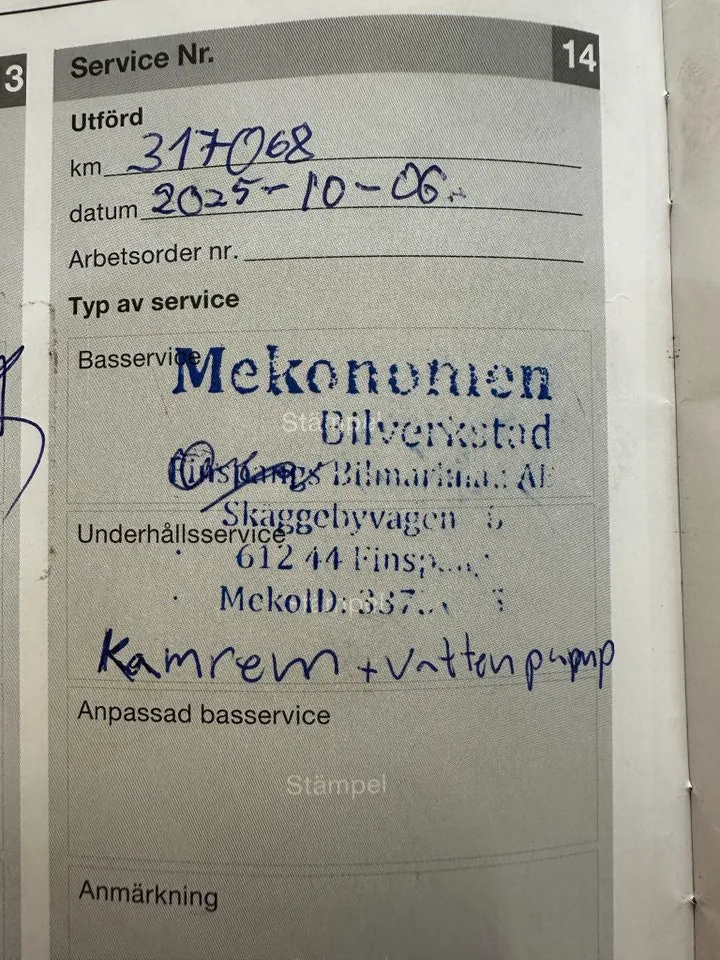 3
Service Nr. 14
Utförd
km 317068
datum 2025-10-06
Arbetsorder nr.
Typ av service
Basservice
Mekonomen
Stämpel
Bilverkstad
Finspångs AB
Skäggebyvägen
Underhållsservice
612 44
MekoID:
Kamrem + Vattenpump
Anpassad basservice
Stämpel
Anmärkning